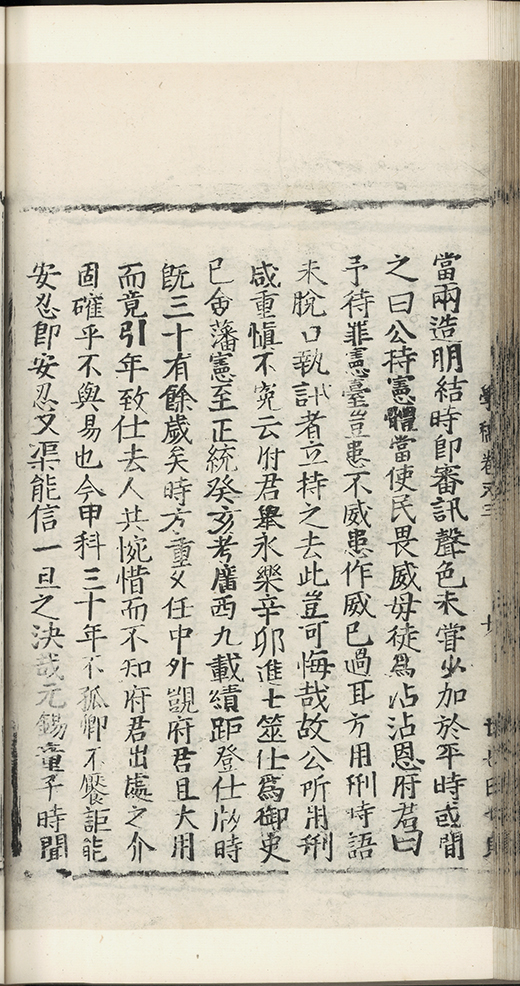 當兩造明結時即審訊聲色未嘗少加於平時或間
之曰公持憲體當使民畏威毋徒為沾沾恩府君曰
予待罪憲臺豈患不威患作威已過耳方用刑時語
未脫口執訊者立持之去此豈可悔哉故公所用刑
咸重慎不冤云府君舉永樂辛卯進士筮仕為御吏
已金藩憲至正統癸亥考廣西九載績距登仕版時
既三十有餘歲矣時方重乂任中外覬府君且大用
而竟引年致仕去人共惋惜而不知府君出處之介
固確乎不與易也今甲科三十年不孤卿不饜詎能
安忍即安忍又渠能信一旦之決哉元錫童丱時聞